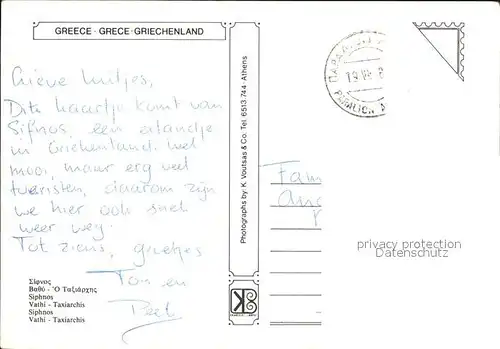 GREECE · GRECE · GRIECHENLAND
Lieve luitjes,
Dit kaartje komt van
Sifnos, een eilandje
in Griekenland. Wel
mooi, maar erg veel
toeristen, daarom zijn
we hier ook snel
weer weg.
Tot ziens, groetjes
Ton en
Σίφνος
Βαθύ - Ὁ Ταξιάρχης
Siphnos
Vathi - Taxiarchis
Siphnos
Vathi - Taxiarchis
Photographs by K. Voutsas & Co. Tel. 6513.744 · Athens
ΠΑΡΑ
19 VIII
Fam
privacy protection
Datenschutz